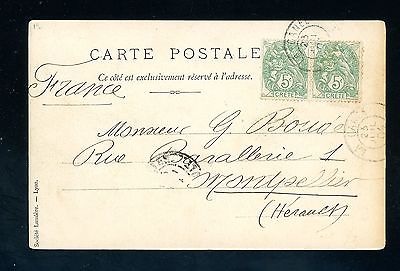 CARTE POSTALE
Ce côté est exclusivement réservé à l'adresse.
France
5c 5c
CRÈTE CRÈTE
Monsieur G.
Rue 1
Montpellier
(Hérault)
Société Lumière. — Lyon.